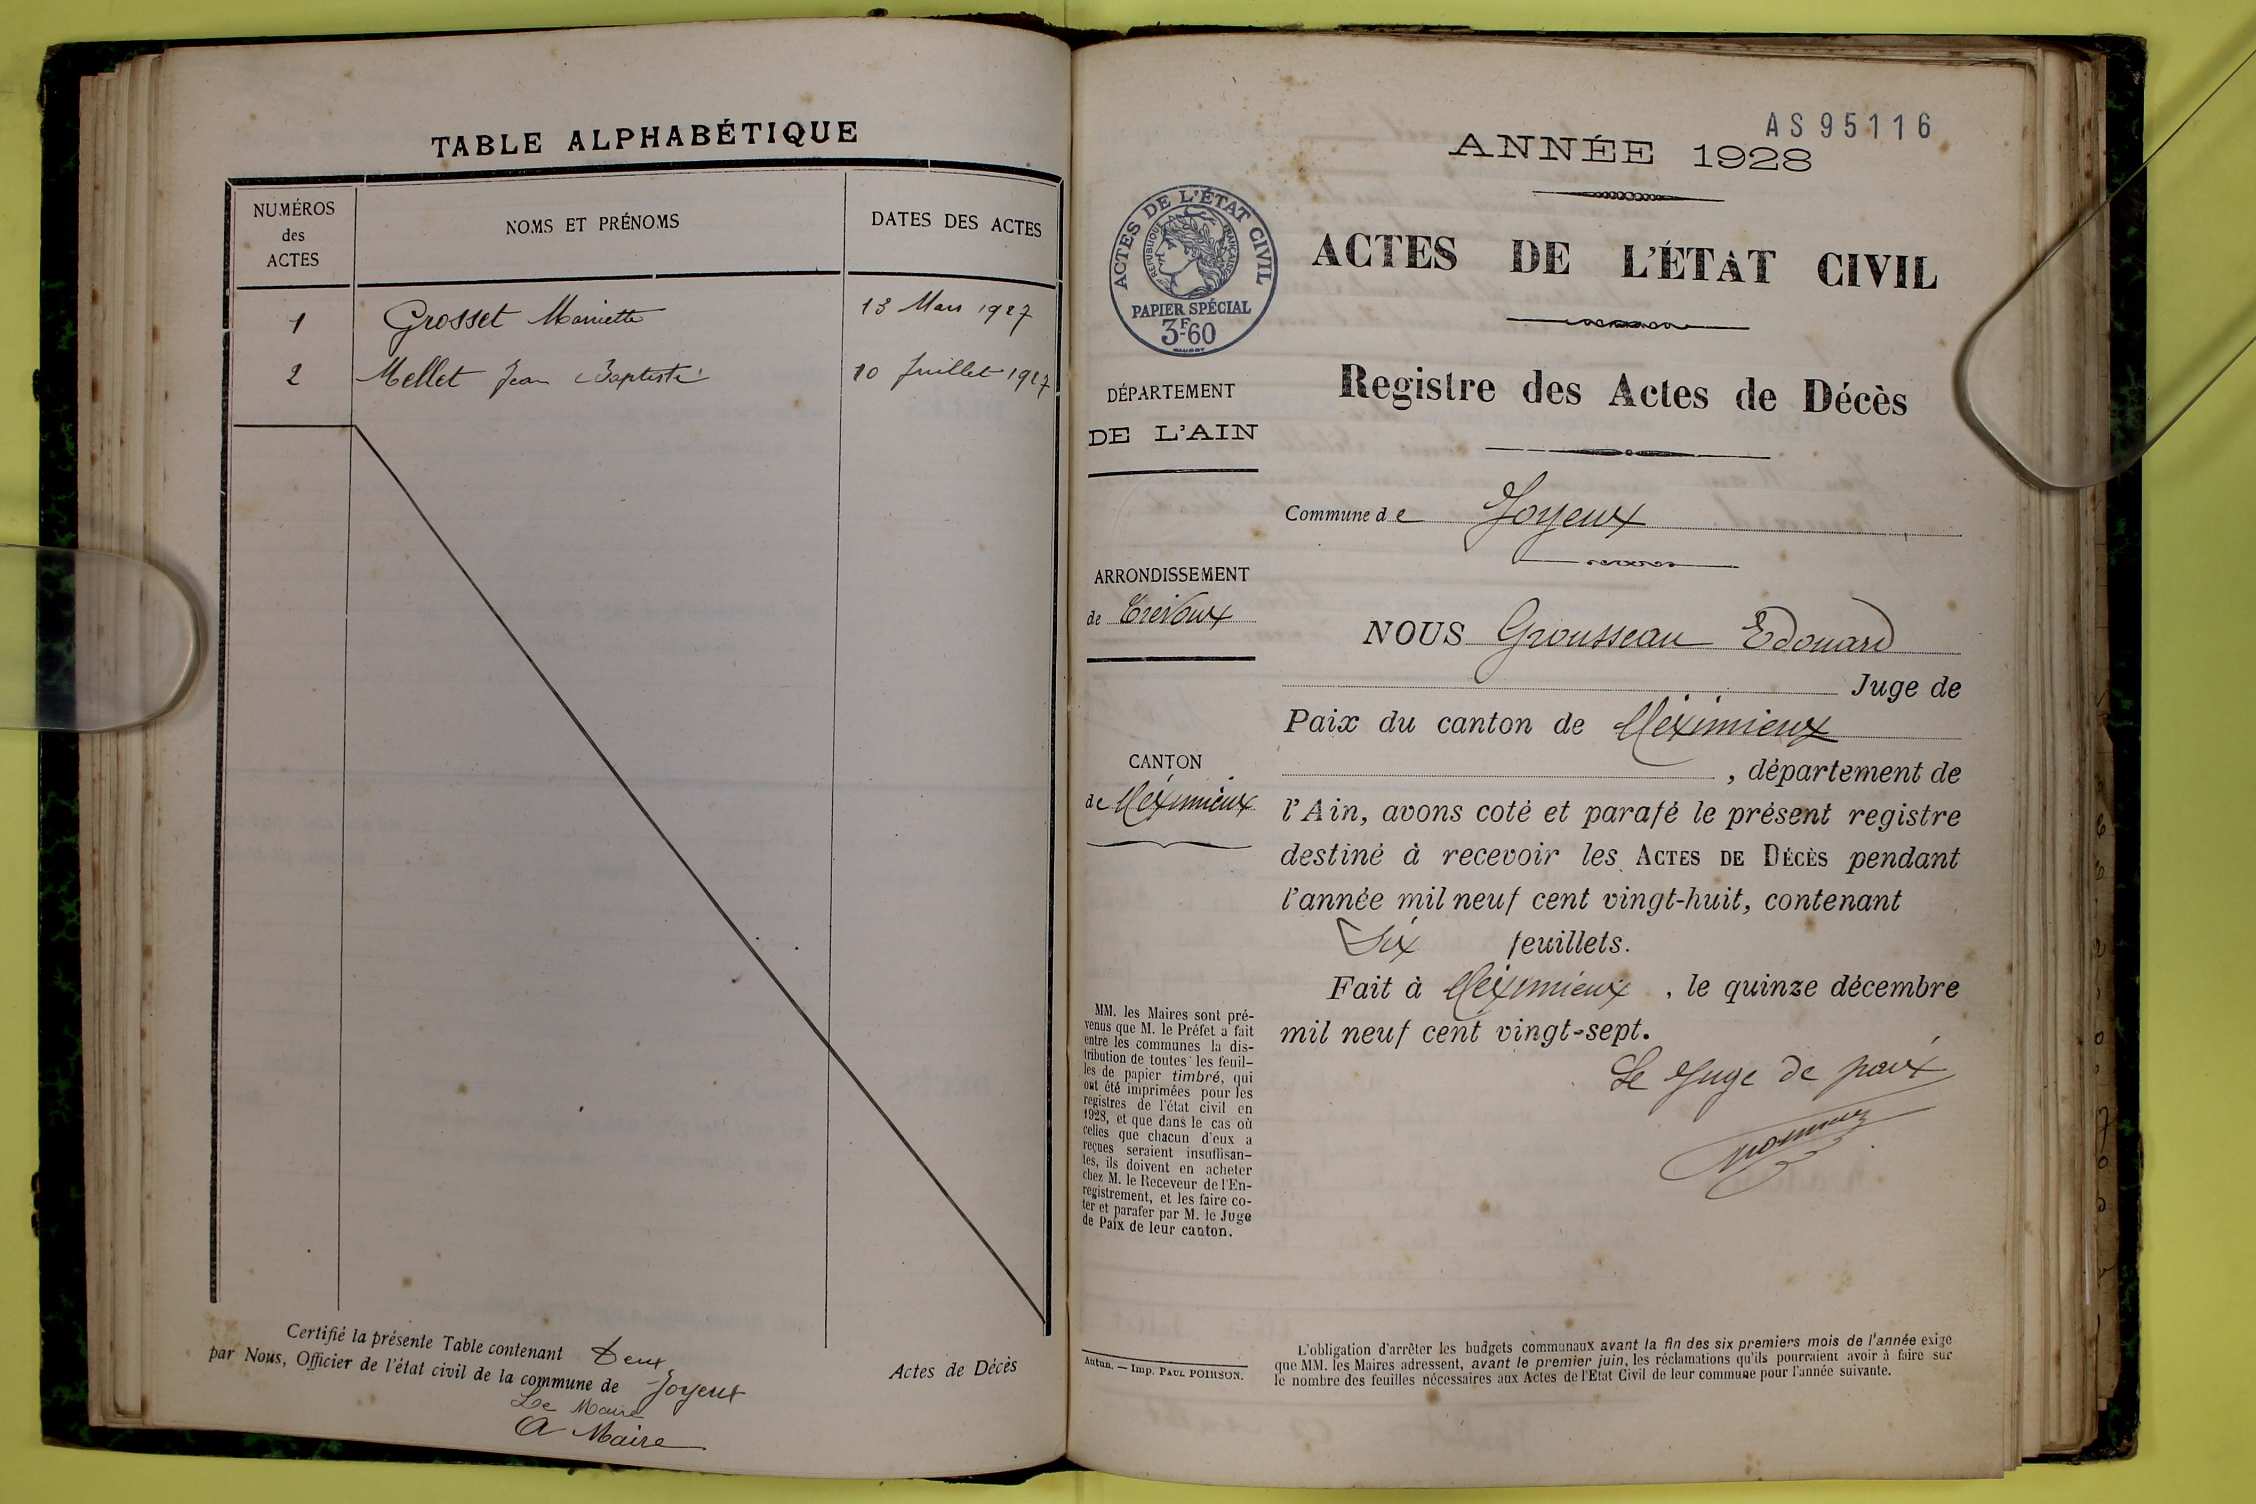 TABLE ALPHABÉTIQUE
NUMÉROS des ACTES
NOMS ET PRÉNOMS
DATES DES ACTES
1 Grosset Mariette 13 Mars 1927
2 Mellet Jean Baptiste 10 Juillet 1927
Certifié la présente Table contenant Deux Actes de Décès
par Nous, Officier de l'état civil de la commune de Joyeux
Le Maire
A Maire
AS95116
ANNÉE 1928
ACTES DE L'ÉTAT CIVIL
RÉPUBLIQUE FRANÇAISE
PAPIER SPÉCIAL
3F60
ACTES DE L'ÉTAT CIVIL
Registre des Actes de Décès
DÉPARTEMENT
DE L'AIN
Commune de Joyeux
ARRONDISSEMENT
de Trévoux
CANTON
de Méximieux
NOUS Grousseau Edouard
Juge de
Paix du canton de Méximieux
, département de
l'Ain, avons coté et parafé le présent registre
destiné à recevoir les ACTES DE DÉCÈS pendant
l'année mil neuf cent vingt-huit, contenant
Six feuillets.
Fait à Méximieux , le quinze décembre
mil neuf cent vingt-sept.
Le Juge de paix
MM. les Maires sont pré-
venus que M. le Préfet a fait
entre les communes la dis-
tribution de toutes les feuil-
les de papier timbré, qui
ont été imprimées pour les
registres de l'état civil en
1928, et que dans le cas où
celles que chacun d'eux a
reçues seraient insuffisan-
tes, ils doivent en acheter
chez M. le Receveur de l'En-
registrement, et les faire co-
ter et parafer par M. le Juge
de Paix de leur canton.
Autun. — Imp. PAUL POIRSON.
L'obligation d'arrêter les budgets communaux avant la fin des six premiers mois de l'année exige
que MM. les Maires adressent, avant le premier juin, les réclamations qu'ils pourraient avoir à faire sur
le nombre des feuilles nécessaires aux Actes de l'Etat Civil de leur commune pour l'année suivante.